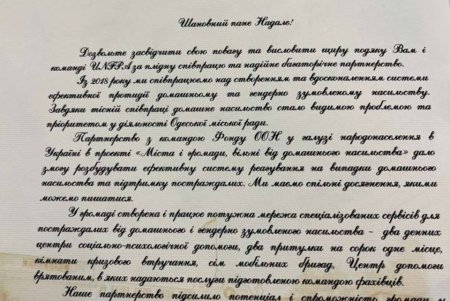 Шановний пане Надале!
Дозвольте засвідчити свою повагу та висловити щиру подяку Вам і
команді UNFPA за плідну співпрацю та надійне багаторічне партнерство.
Із 2018 року ми співпрацюємо над створенням та вдосконаленням системи
ефективної протидії домашньому та гендерно зумовленому насильству.
Завдяки тісній співпраці домашнє насильство стало видимою проблемою та
пріоритетом у діяльності Одеської міської ради.
Партнерство з командою Фонду ООН у галузі народонаселення в
Україні в проєкті «Міста і громади, вільні від домашнього насильства» дало
змогу розбудувати ефективну систему реагування на випадки домашнього
насильства та підтримку постраждалих. Ми маємо спільні досягнення, якими
можемо пишатися.
У громаді створена і працює потужна мережа спеціалізованих сервісів для
постраждалих від домашнього і гендерно зумовленого насильства – два денних
центри соціально-психологічної допомоги, два притулки на сорок одне місце,
кімнати кризового втручання, сім мобільних бригад, Центр допомоги
врятованим, в яких надаються послуги підготовленою командою фахівців.
Наше партнерство підсилило потенціал і спроможність громади у